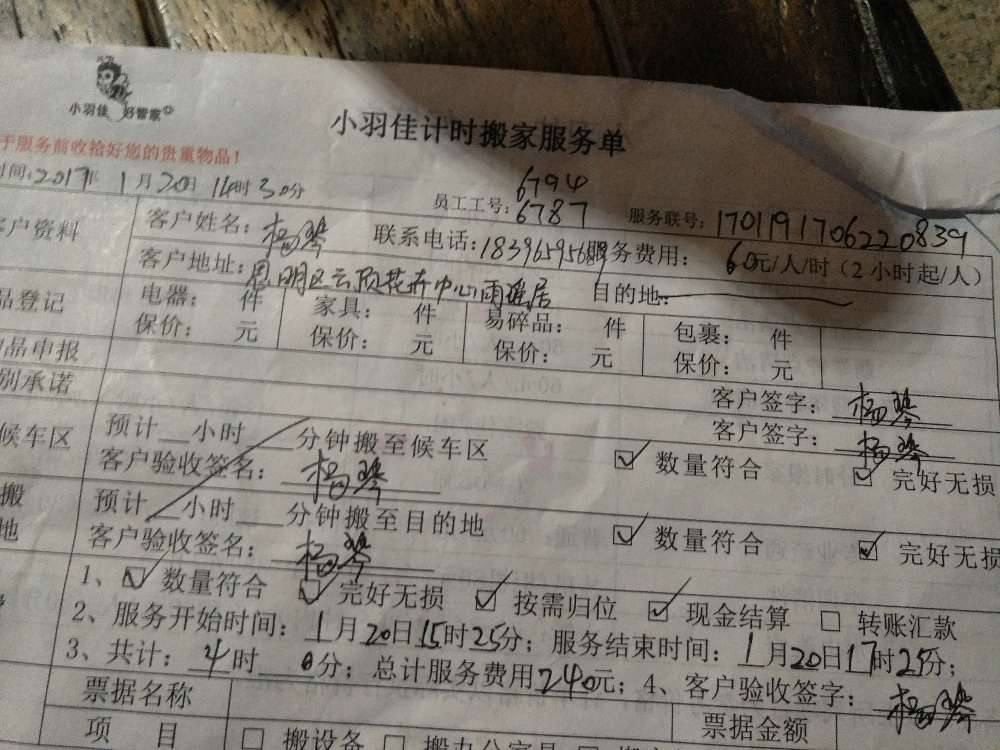 小羽佳 好管家
小羽佳计时搬家服务单
于服务前收拾好您的贵重物品!
时间:2017年 1月20日 14时30分
员工工号: 6794 6787
服务联号: 170119170622 0839
客户资料
客户姓名: 杨琴 联系电话: 服务费用: 60元/人/时(2小时起/人)
客户地址: 思明区云顶花卉中心雨 居 目的地:
品登记
电器: 件 家具: 件 易碎品: 件 包裹: 件
保价: 元 保价: 元 保价: 元 保价: 元
物品申报 客户签字: 杨琴
别承诺 客户签字: 杨琴
候车区 预计 小时 分钟搬至候车区
客户验收签名: 杨琴 ☑ 数量符合 ☑ 完好无损
搬
地
预计 小时 分钟搬至目的地
客户验收签名: 杨琴 ☑ 数量符合 ☑ 完好无损
1、☑ 数量符合 ☑ 完好无损 ☑ 按需归位 ☑ 现金结算 □ 转账汇款
2、服务开始时间: 1月20日15时25分; 服务结束时间: 1月20日17时25分;
3、共计: 4时 0分; 总计服务费用240元; 4、客户验收签字: 杨琴
票据名称 票据金额
项 目 □ 搬设备 □ 搬办公家具